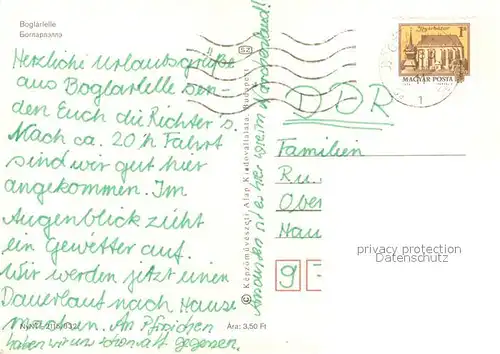 Boglarlelle
Богларлелле
Herzliche Urlaubsgrüße
aus Boglarlelle sen-
den Euch die Richter's.
Nach ca. 20 h Fahrt
sind wir gut hier
angekommen. Im
Augenblick zieht
ein Gewitter auf.
Wir werden jetzt einen
Dauerlauf nach Hause
machen. An Pfirsichen
haben wir uns schon satt gegessen.
Ansonsten ist es hier wie im Märchenland!
Ára: 3,50 Ft
© Képzőművészeti Alap Kiadóvállalata, Budapest
SZ
1Ft
MAGYAR POSTA
1
DDR
Familien
Ru
Ober
Hau
9
privacy protection
Datenschutz